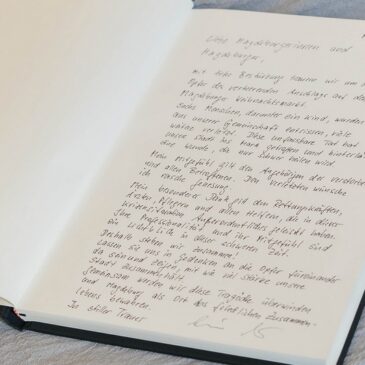 Liebe Magdeburgerinnen und
Magdeburger,
mit tiefer Bestürzung trauern wir um die
Opfer des verheerenden Anschlags auf dem
Magdeburger Weihnachtsmarkt.
Sechs Menschen, darunter ein Kind, wurden
aus unserer Gemeinschaft entrissen, viele
weitere verletzt. Diese unfassbare Tat hat
unsere Stadt ins Herz getroffen und hinterlässt
eine Wunde, die nur schwer heilen wird.
Mein Mitgefühl gilt den Angehörigen der Verstorbenen
und allen Betroffenen. Den Verletzten wünsche
ich rasche Genesung.
Mein besonderer Dank gilt den Rettungskräften,
Ärzten, Pflegern und allen Helfern, die in dieser
Krisensituation Außerordentliches geleistet haben.
Ihre Professionalität und ihr Mitgefühl sind
ein Lichtblick in dieser schweren Zeit.
Deshalb stehen wir zusammen!
Lassen Sie uns in Gedenken an die Opfer füreinander
da sein und zeigen, mit wie viel Stärke unsere
Stadt zusammenhält.
Gemeinsam werden wir diese Tragödie überwinden
und Magdeburg als Ort des friedlichen Zusammen-
lebens bewahren.
In stiller Trauer